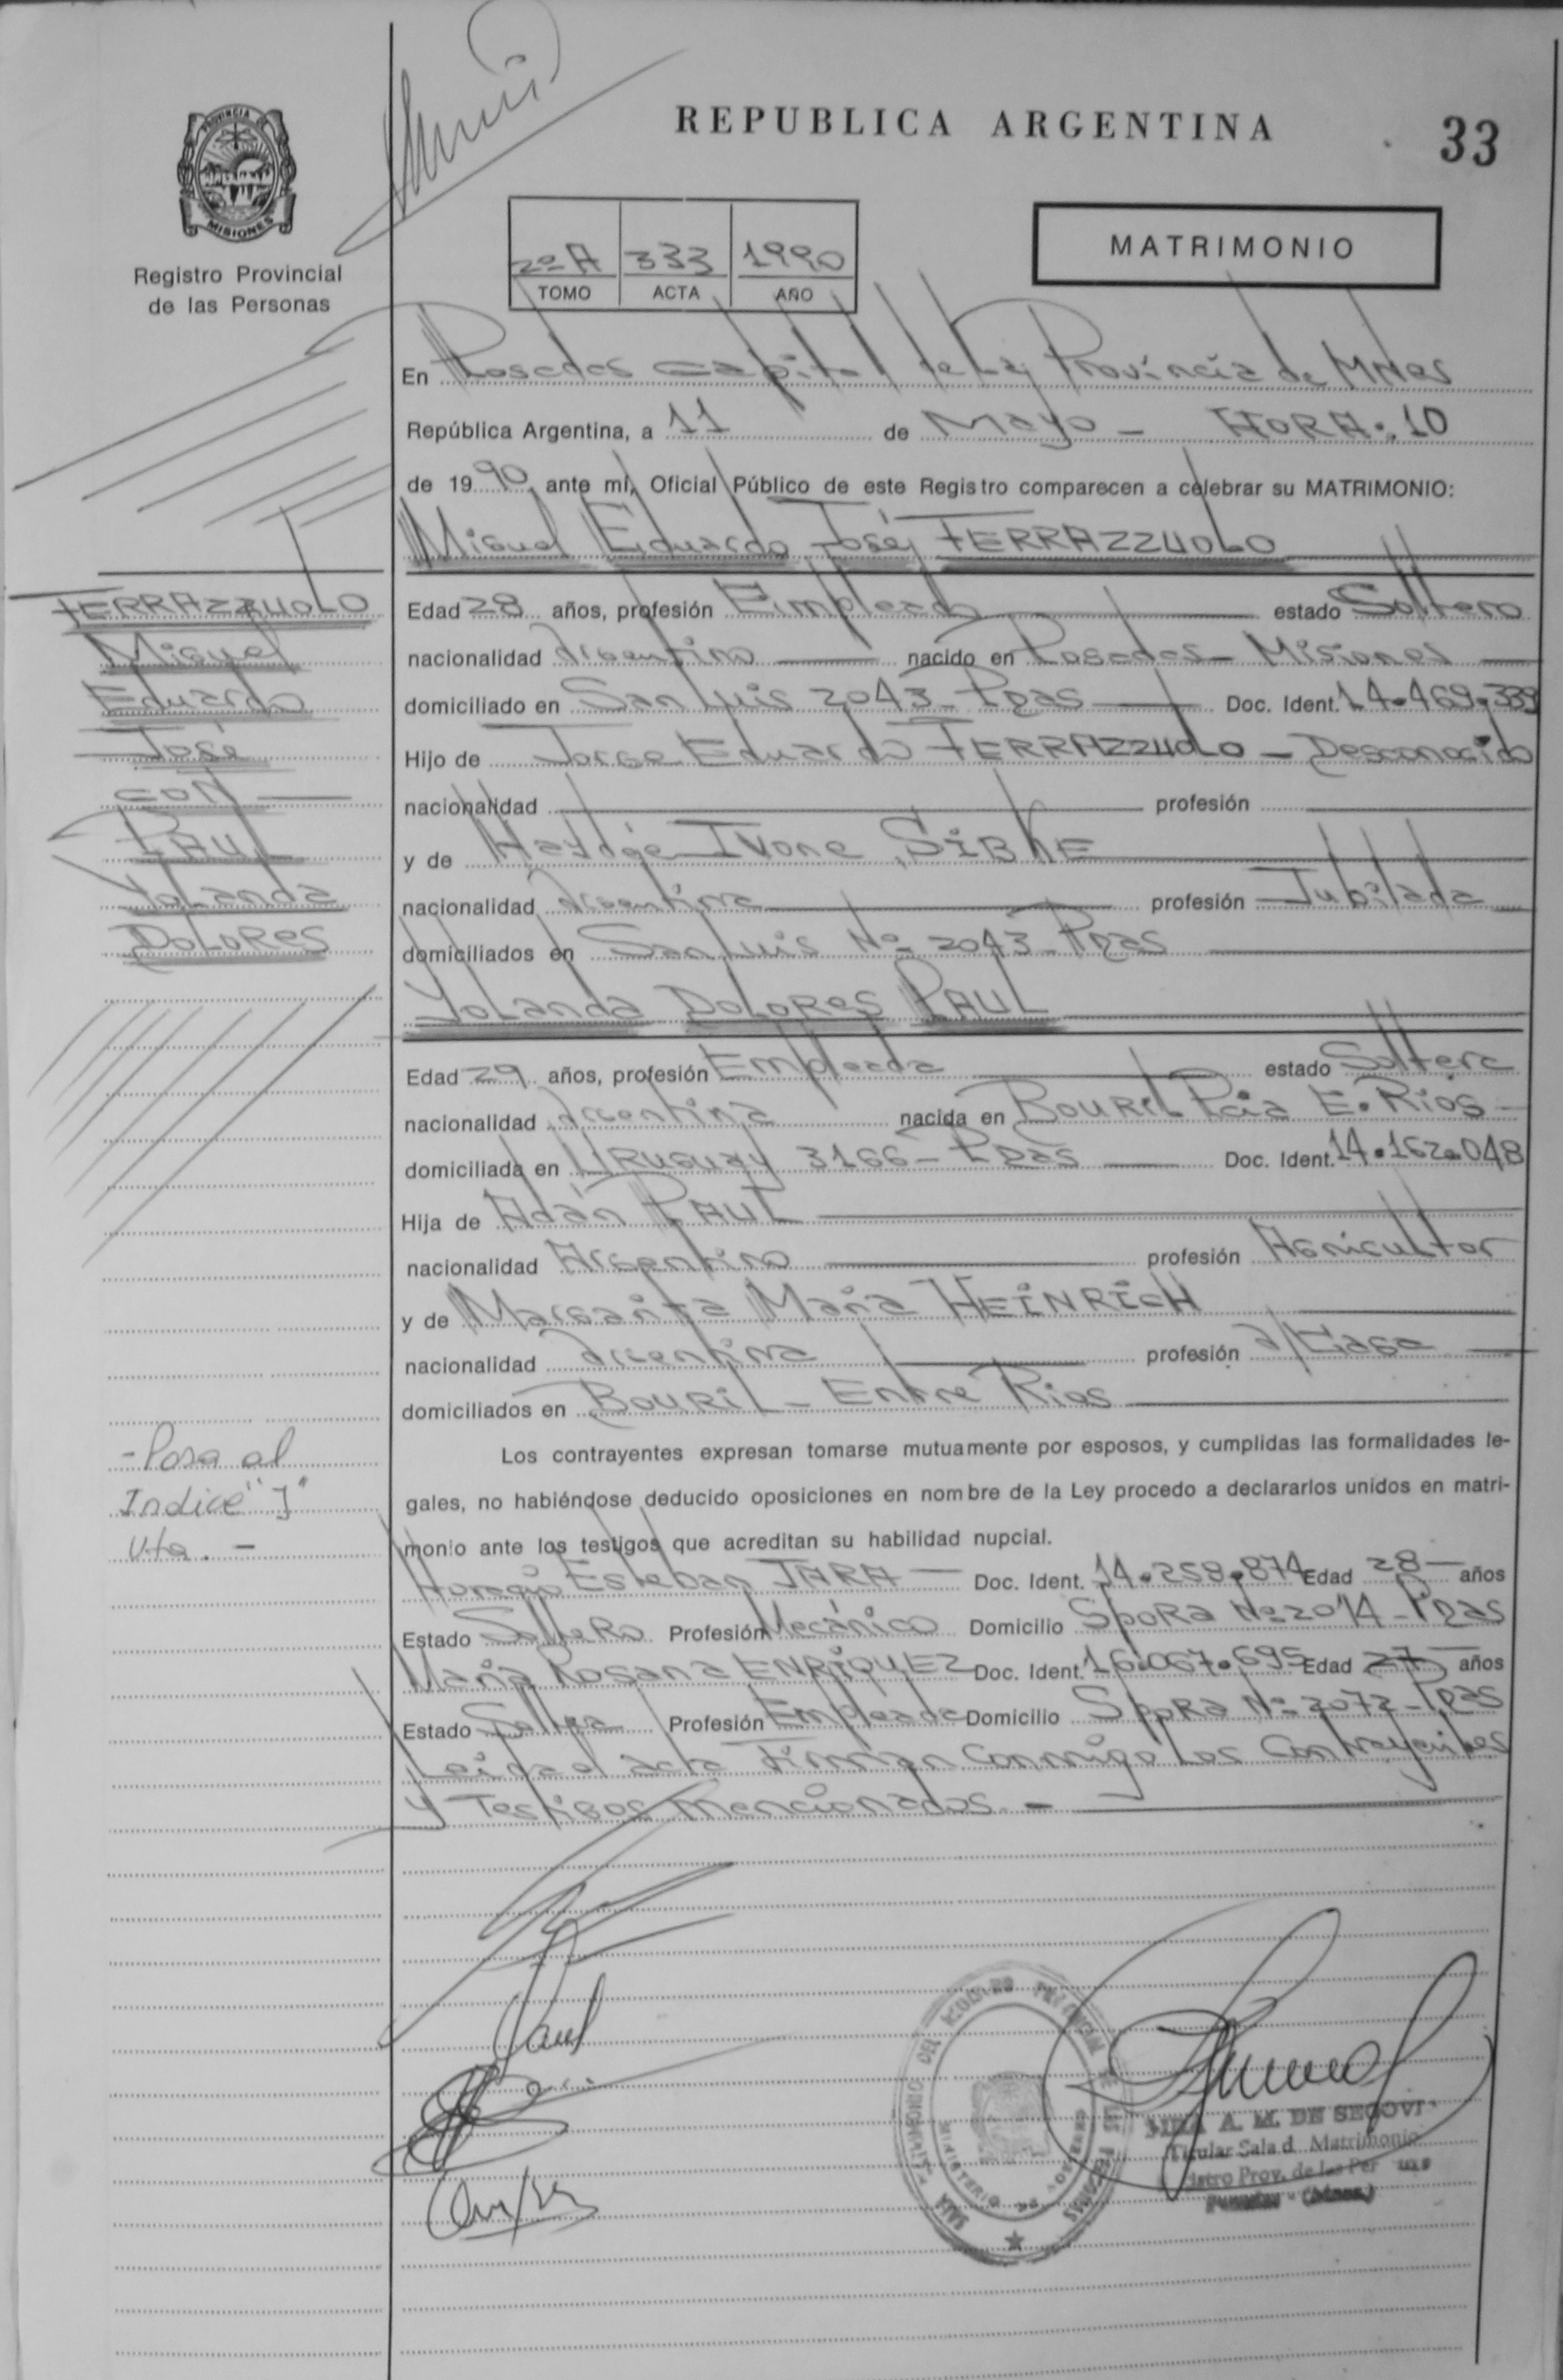 REPUBLICA ARGENTINA
33
PROVINCIA DE
MISIONES
Registro Provincial
de las Personas
2º A 333 1990
TOMO ACTA AÑO
MATRIMONIO
En Posadas Capital de La Provincia de Mnes
República Argentina, a 11 de Mayo - HORA: 10
de 1990 ante mí, Oficial Público de este Registro comparecen a celebrar su MATRIMONIO:
Miguel Eduardo José FERRAZZUOLO
FERRAZZUOLO
Miguel
Eduardo
José
CON
PAUL
Yolanda
DOLORES
Edad 28 años, profesión Empleado estado Soltero
nacionalidad Argentino nacido en Posadas - Misiones
domiciliado en San Luis 2043 - Pdas Doc. Ident. 14.469.339
Hijo de Jorge Eduardo FERRAZZUOLO - Desconocido
nacionalidad profesión
y de Haydée Ivone
nacionalidad Argentina profesión Jubilada
domiciliados en San Luis Nº 2043 - Pdas
Yolanda DOLORES PAUL
Edad 29 años, profesión Empleada estado Soltera
nacionalidad Argentina nacida en BOURIL Pcia E. Rios
domiciliada en Uruguay 3166 - Pdas Doc. Ident. 14.162.048
Hija de Adán PAUL
nacionalidad Argentino profesión Agricultor
y de Margarita María HEINRICH
nacionalidad Argentina profesión a/Casa
domiciliados en BOURIL - Entre Rios
Los contrayentes expresan tomarse mutuamente por esposos, y cumplidas las formalidades le-
gales, no habiéndose deducido oposiciones en nombre de la Ley procedo a declararlos unidos en matri-
monio ante los testigos que acreditan su habilidad nupcial.
- Pasa al
Indice "J"
Vta. -
Horacio Esteban JARA - Doc. Ident. 14.258.874 Edad 28 años
Estado Soltero Profesión Mecánico Domicilio Nº 2014 - Pdas
María Rosana ENRIQUEZ Doc. Ident. 16.067.695 Edad 27 años
Estado Soltera Profesión Empleada Domicilio Nº 2072 - Pdas
Leida el acta Firman Conmigo Los Contrayentes
y Testigos Mencionados. -
Paul
A. M. DE SEGOVI
Titular Sala d Matrimonio
istro Prov. de las Per